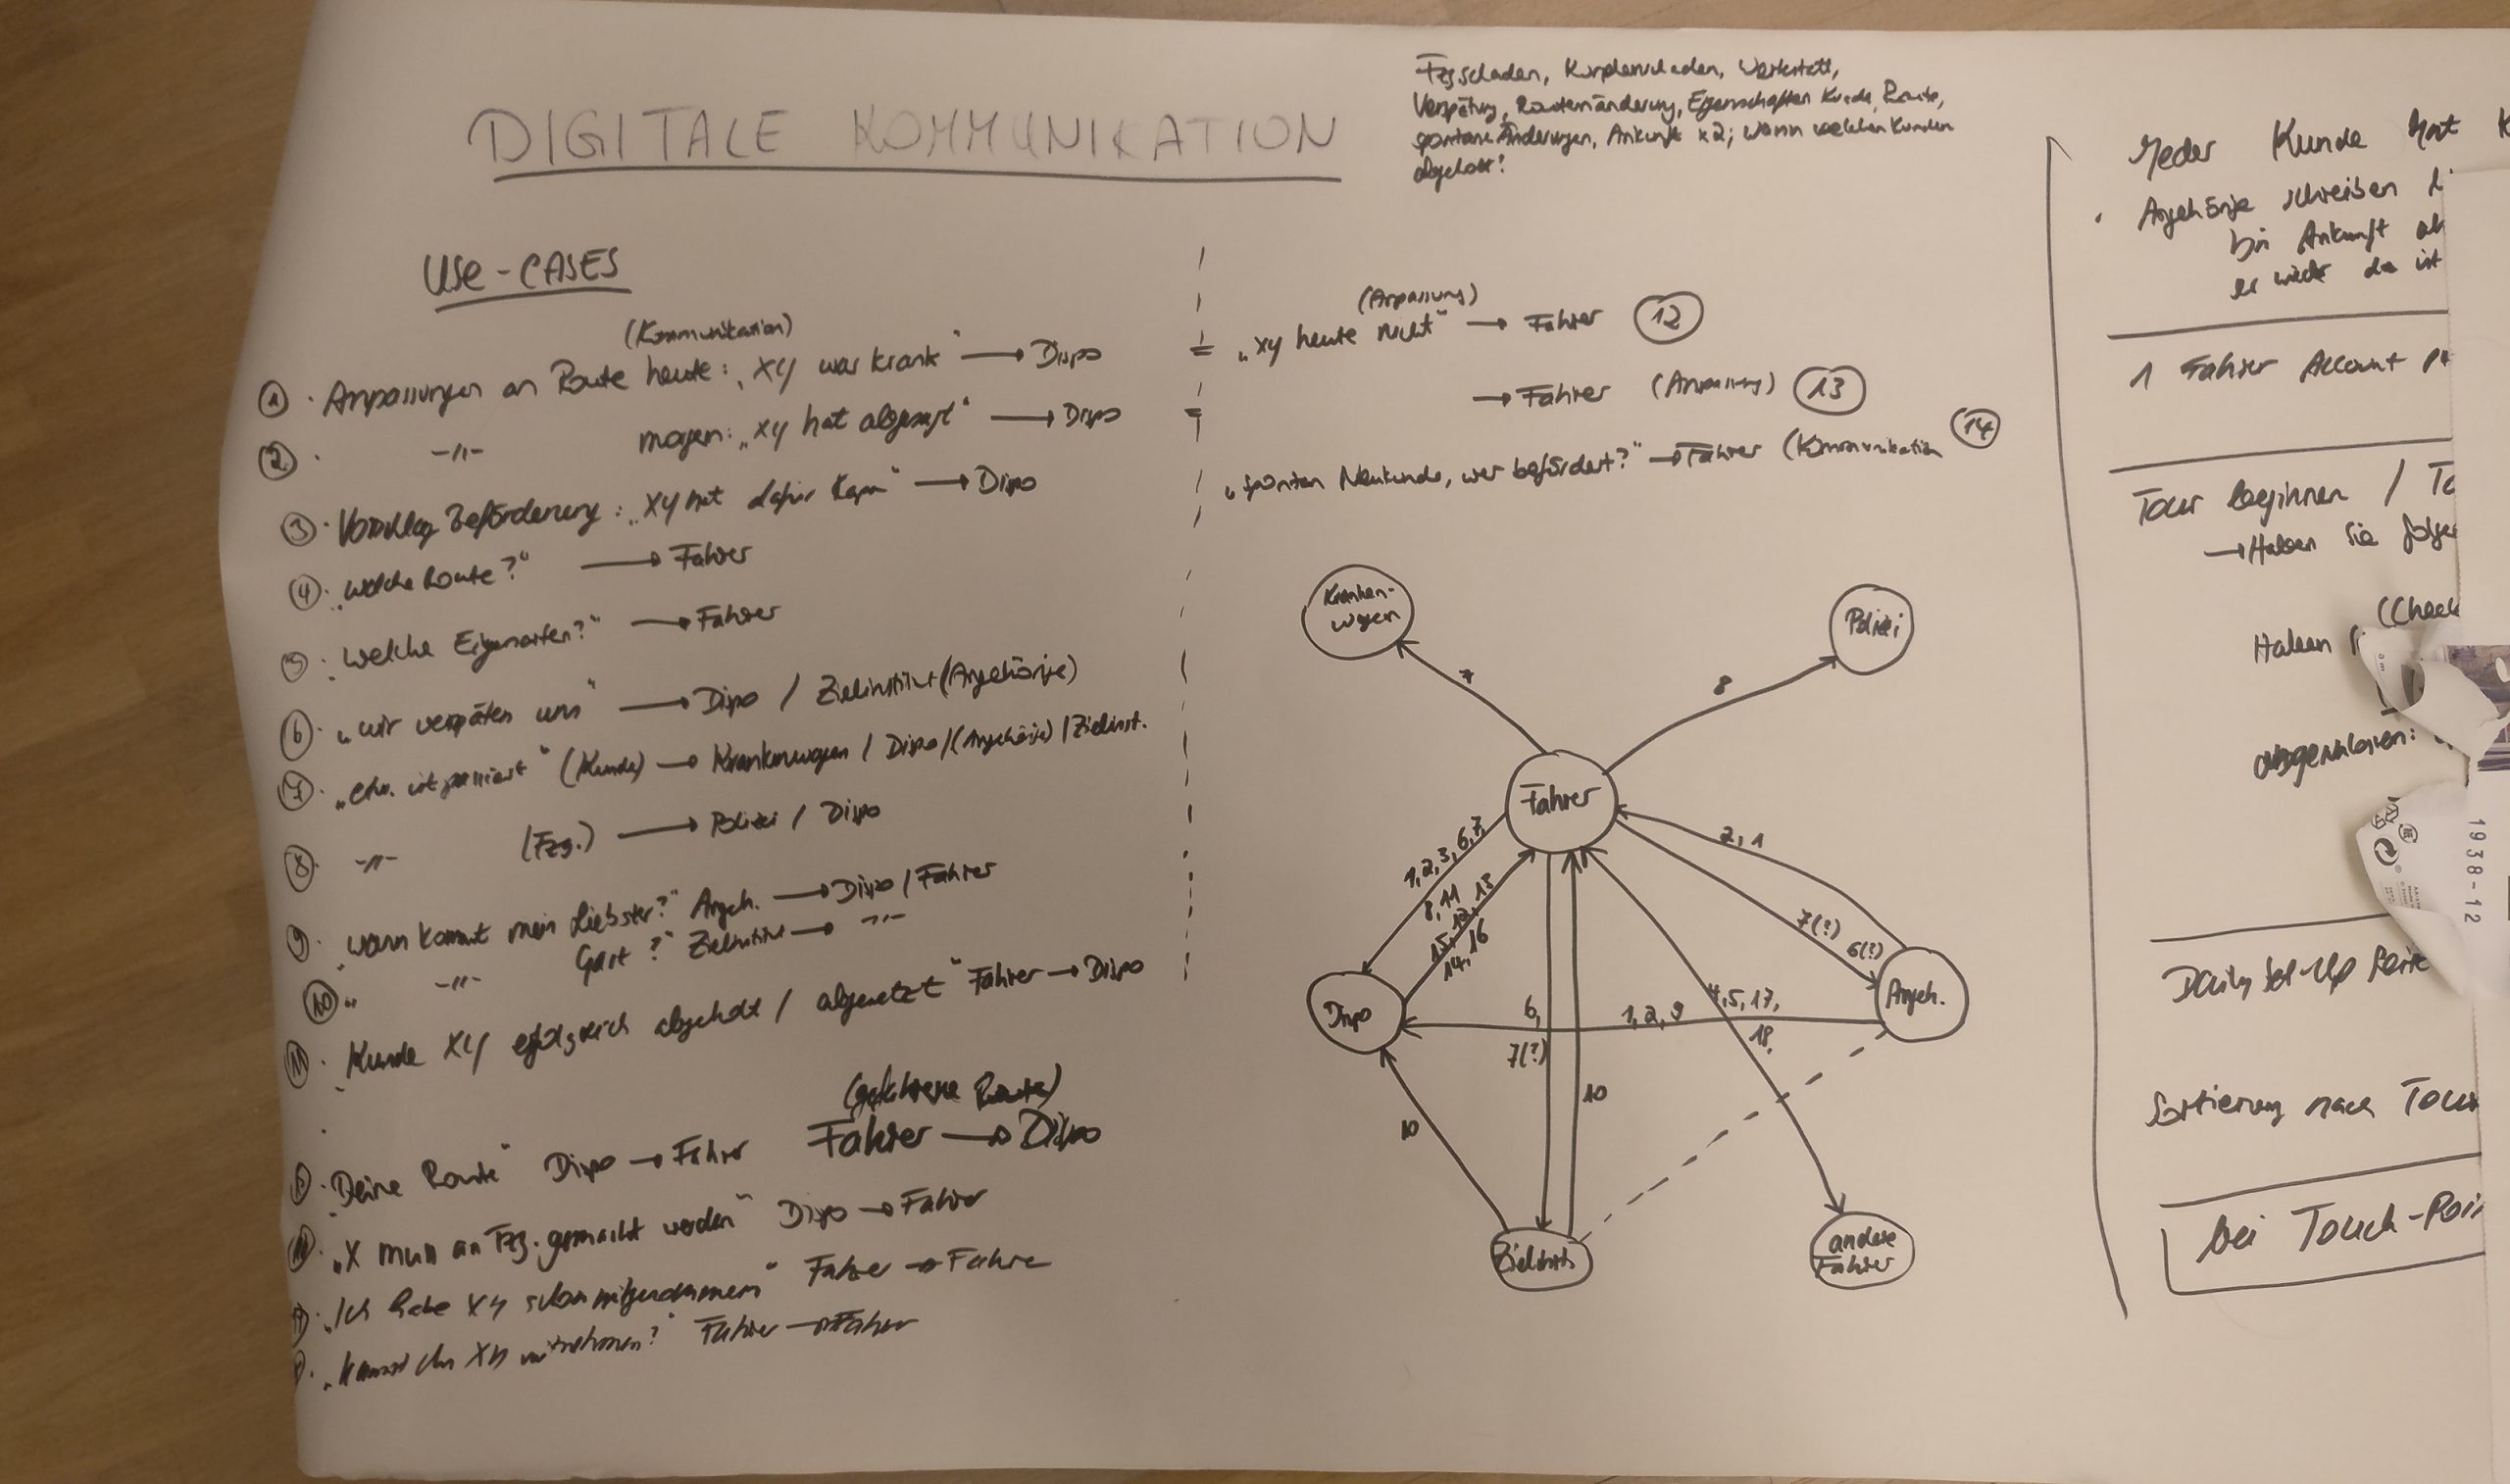 DIGITALE KOMMUNIKATION
Fzgschaden, Kundenschaden, Werkstatt,
Verspätung, Routenänderung, Eigenschaften Kunde, Route,
spontane Änderungen, Ankunft x2; wann welchen Kunden
abgeholt?
USE-CASES
(Kommunikation)
① · Anpassungen an Route heute: „XY war krank" → Dispo
② · -"- morgen: „XY hat abgesagt" → Dispo
③ · Vorschlag Beförderung: „XY hat dafür Kapa" → Dispo
④ · „welche Route?" → Fahrer
⑤ · „welche Eigenarten?" → Fahrer
⑥ · „wir verspäten uns" → Dispo / Zielinstitut (Angehörige)
⑦ · „etw. ist passiert" (Kunde) → Krankenwagen / Dispo / (Angehörige) / Zielinst.
⑧ · -"- (Fzg.) → Polizei / Dispo
⑨ · „wann kommt mein Liebster?" Angeh. → Dispo / Fahrer
⑩ · „ -"- Gast?" Zielinstitut → -"-
⑪ · „Kunde XY erfolgreich abgeholt / abgesetzt" Fahrer → Dispo
(gefahrene Route)
· „Deine Route" Dispo → Fahrer Fahrer → Dispo
· „X muss an Fzg. gemacht werden" Dispo → Fahrer
⑰ · „Ich habe XY schon mitgenommen" Fahrer → Fahrer
· „Kannst du XY mitnehmen?" Fahrer → Fahrer
(Anpassung)
= „XY heute nicht" → Fahrer ⑫
= → Fahrer (Anpassung) ⑬
„spontan Neukunde, wer befördert?" → Fahrer (Kommunikation ⑭
Kranken-
wagen
Polizei
7
8
Fahrer
1,2,3,6,7,
8,11
15,12,13
14,16
2,1
7(?)
6(?)
Dispo
Angeh.
6,
7(?)
1,2,9
4,5,17,
18
10
10
Zielinst.
andere
Fahrer
Jeder Kunde hat K
· Angehörige schreiben
bei Ankunft ab
er wieder da ist
1 Fahrer Account
Tour beginnen / To
→ Haben Sie folge
(Check
Haben
abgeschlossen:
1938-12
Daily Set-Up
Sortierung nach Tour
bei Touch-Poin